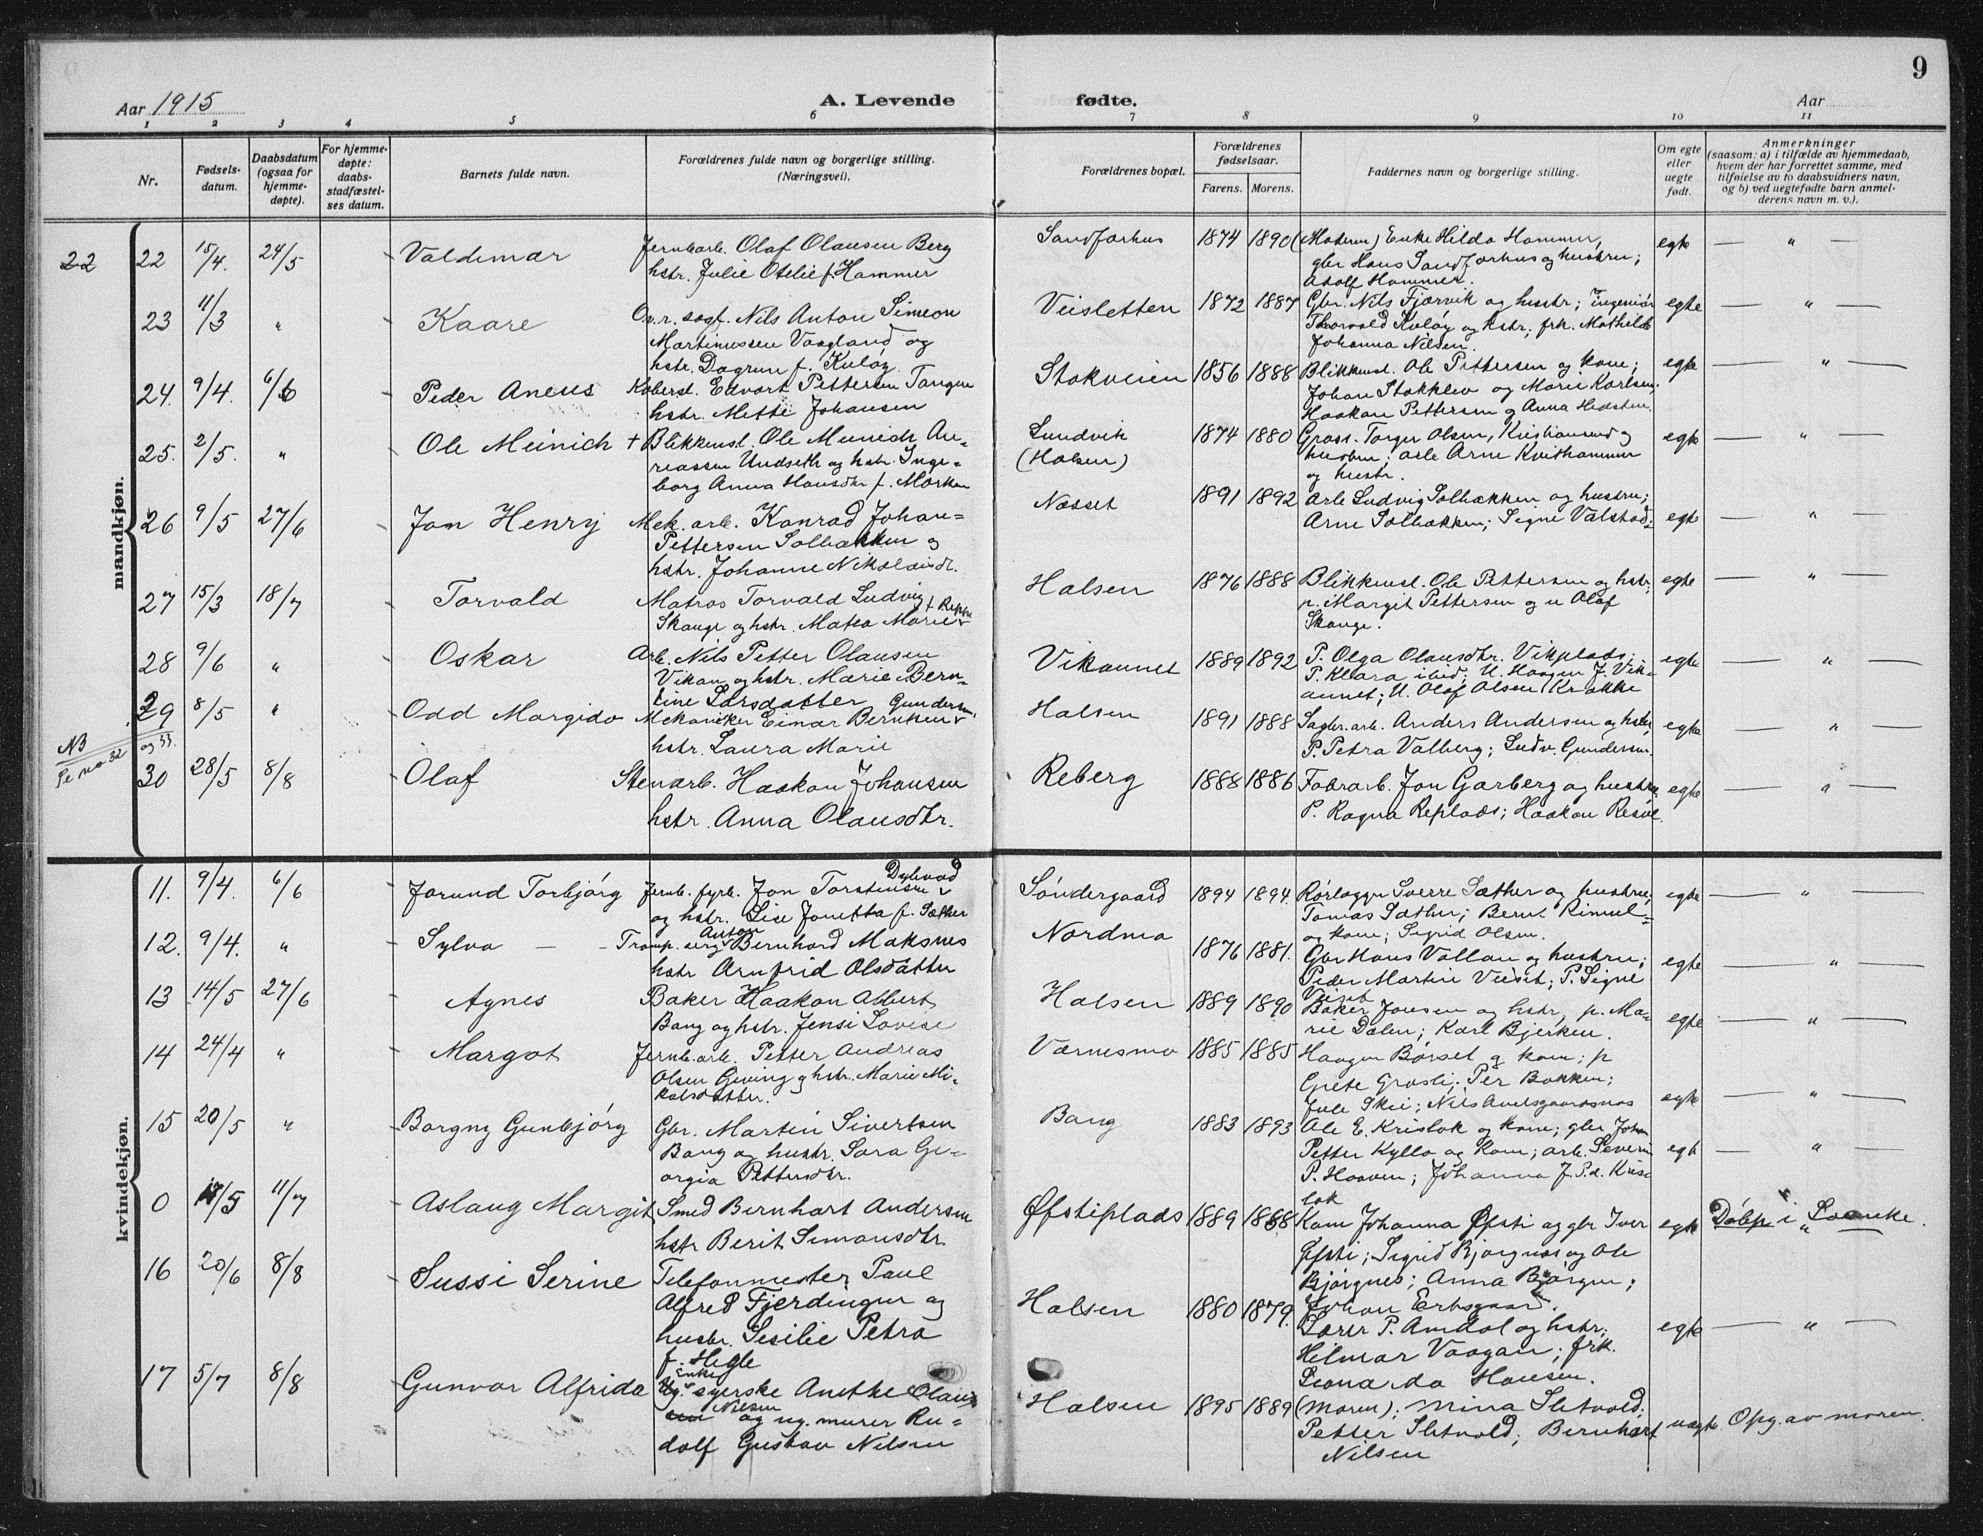 9
Aar 1915 A. Levende fødte. Aar
1 2 3 4 5 6 7 8 9 10 11
Nr.
Fødsels-
datum.
Daabsdatum
(ogsaa for
hjemme-
døpte).
For hjemme-
døpte:
daabs-
stadfæstel-
ses datum.
Barnets fulde navn.
Forældrenes fulde navn og borgerlige stilling.
(Næringsvei).
Forældrenes bopæl.
Forældrenes
fødselsaar.
Farens. Morens.
Faddernes navn og borgerlige stilling.
Om egte
eller
uegte
født.
Anmerkninger
(saasom: a) i tilfælde av hjemmedaab,
hvem der har forrettet samme, med
tilføielse av to daabsvidners navn,
og b) ved uegtefødte barn anmel-
derens navn m. v.).
mandkjøn.
22 22 15/4. 24/5 Valdemar Jernb.arb. Olaf Olausen Berg Sandforhus 1874 1890 (Moderen) Enke Hilda Hammer, egte — " —
hstr. Julie Otelie f. Hammer gbr Hans Sandforhus og hustru;
Adolf Hammer.
23 11/3 " Kaare O.r.sagf. Nils Anton Simeon Veisletten 1872 1887 Gbr. Nils Fjærvik og hustr; Ingeniør egte — " —
Martinussen Vaagland og Thorvald Kuløy og hstr; frk. Mathilde
hstr. Dagrun f. Kuløy. Johanna Nilsen.
24. 9/4. 6/6 Peder Aneus Kobersl. Edvart Pettersen Tangen Stokveien 1856 1888 Blikkensl. Ole Pettersen og kone; egte — " —
hstr. Mette Johansen Johan Stokklev og Marie Karlsen;
Haakon Pettersen og Anna Hedsten.
25. 2/5. " Ole Meinich + Blikkensl. Ole Meinich An- Sundvik 1874 1880 Gross. Torger Olsen, Kristiansund og egte — " —
reassen Undseth og hstr. Inge- (Halsen) hustru; arb. Arne Kvithammer
borg Anna Hansdtr f. Marken og hustr.
26 9/5 27/6 Jon Henry Mek. arb. Konrad Johan- Næsset 1891 1892 arb Ludvig Solbakken og hustru; egte — " —
Pettersen Solbakken og Arne Solbakken; Signe Valstad.
hstr. Johanne Nikolaisdtr.
27 15/3 18/7 Torvald Matros Torvald Ludvig f. Reppe Halsen 1876 1888 Blikkensl. Ole Pettersen og hstr; egte — " —
Skauge og hstr. Matea Marie p. Margit Pettersen og u Olaf
Skauge.
28 9/6 " Oskar Arb. Nils Petter Olausen Vikaunet 1889 1892 P. Olga Olausdtr. Vikplads; egte — " —
Vikan og hstr. Marie Bern- P. Klara ibid; U. Haagen J. Vik-
tine Larsdatter aunet; U. Olaf Olsen Krokke
29 8/5 " Odd Margido Mekaniker Einar Berntsen Gundersen Halsen 1891 1888 Sagbr.arb. Anders Andersen og hstr; egte — " —
og 33. hstr. Laura Marie P. Petra Valberg; Ludv. Gundersen.
NB
Se no. 32
30 28/5 8/8 Olaf Stenarb. Haakon Johansen Reberg 1888 1886 Fabrarb. Jon Garberg og hustru; egte — " —
hstr. Anna Olausdtr. P. Ragna Replads; Haakon Resve.
kvindekjøn.
11. 9/4. 6/6 Jorund Torbjørg Jernb. fyrb. Jon Torstensen Dybvad Søndergaard 1894 1894. Rørlægger Sverre Sæther og hustru; egte — " —
og hstr. Lise Jonetta f. Sæther Tomas Sæther; Bernt Rimul
og kone; Sigrid Olsen.
12. 9/4. " Sylva — — Tromp. serg Anton Bernhard Maksnes Nordmo 1876 1881. Gbr Hans Vollan og hustru; egte — " —
hstr Arnfrid Olsdatter Peder Martin Veiset; P. Signe
Veiset
13 14/5 27/6 Agnes Baker Haakon Albert Halsen 1889 1890 Baker Jonsen og hstr, p. Ma- egte — " —
Bang og hstr. Jensi Lovise rie Dalen; Karl Bjerken.
14 24/4 " Margot Jernb.arb. Petter Andreas Værnesmo 1885 1885 Haagen Børset og kone; p egte — " —
Olsen Geving og hstr. Marie Mi- Grete Grasli; Per Bakken;
kalsdatter. Jule Skei; Nils
15 20/5 " Borgny Gunbjørg Gbr. Martin Sivertsen Bang 1883 1893 Ole E. Krislok og kone; gbr Johan egte — " —
Bang og hustr. Sara Ge- Petter Kyllo og kone; arb. Severin
orgia Pettersdtr. P. Haaven; Johanna J. P. d. Kris-
lok
0 17/5 11/7 Aslaug Margit Smed Bernhart Andersen Øfstiplads 1889 1888 Kone Johanna Øfsti og gbr Iver egte Døbt i Lænke.
hstr Berit Simonsdtr. Øfsti; Sigrid Bjørgnes og Ole
Bjørgnes; Anna Bjørgen;
Johan Ertsgaard.
16 20/6 8/8 Sussi Serine Telefonmester Paul Halsen 1880 1879. Lærer P. Amdal og hstr; egte — " —
Alfred Fjerdingen og Hilmar Vaagan; frk.
hustr. Sesilie Petra Leonarda Hansen.
f. Hegle
17 5/7 8/8 Gunvor Alfrida Ug. Enke syerske Anethe Olau- Halsen 1895 1889 (Moren); Mina Sletvold; uegte Opg. av moren.
sen Nilsen og ug. murer Ru- Petter Sletvold; Bernhart
dolf Gustav Nilsen Nilsen